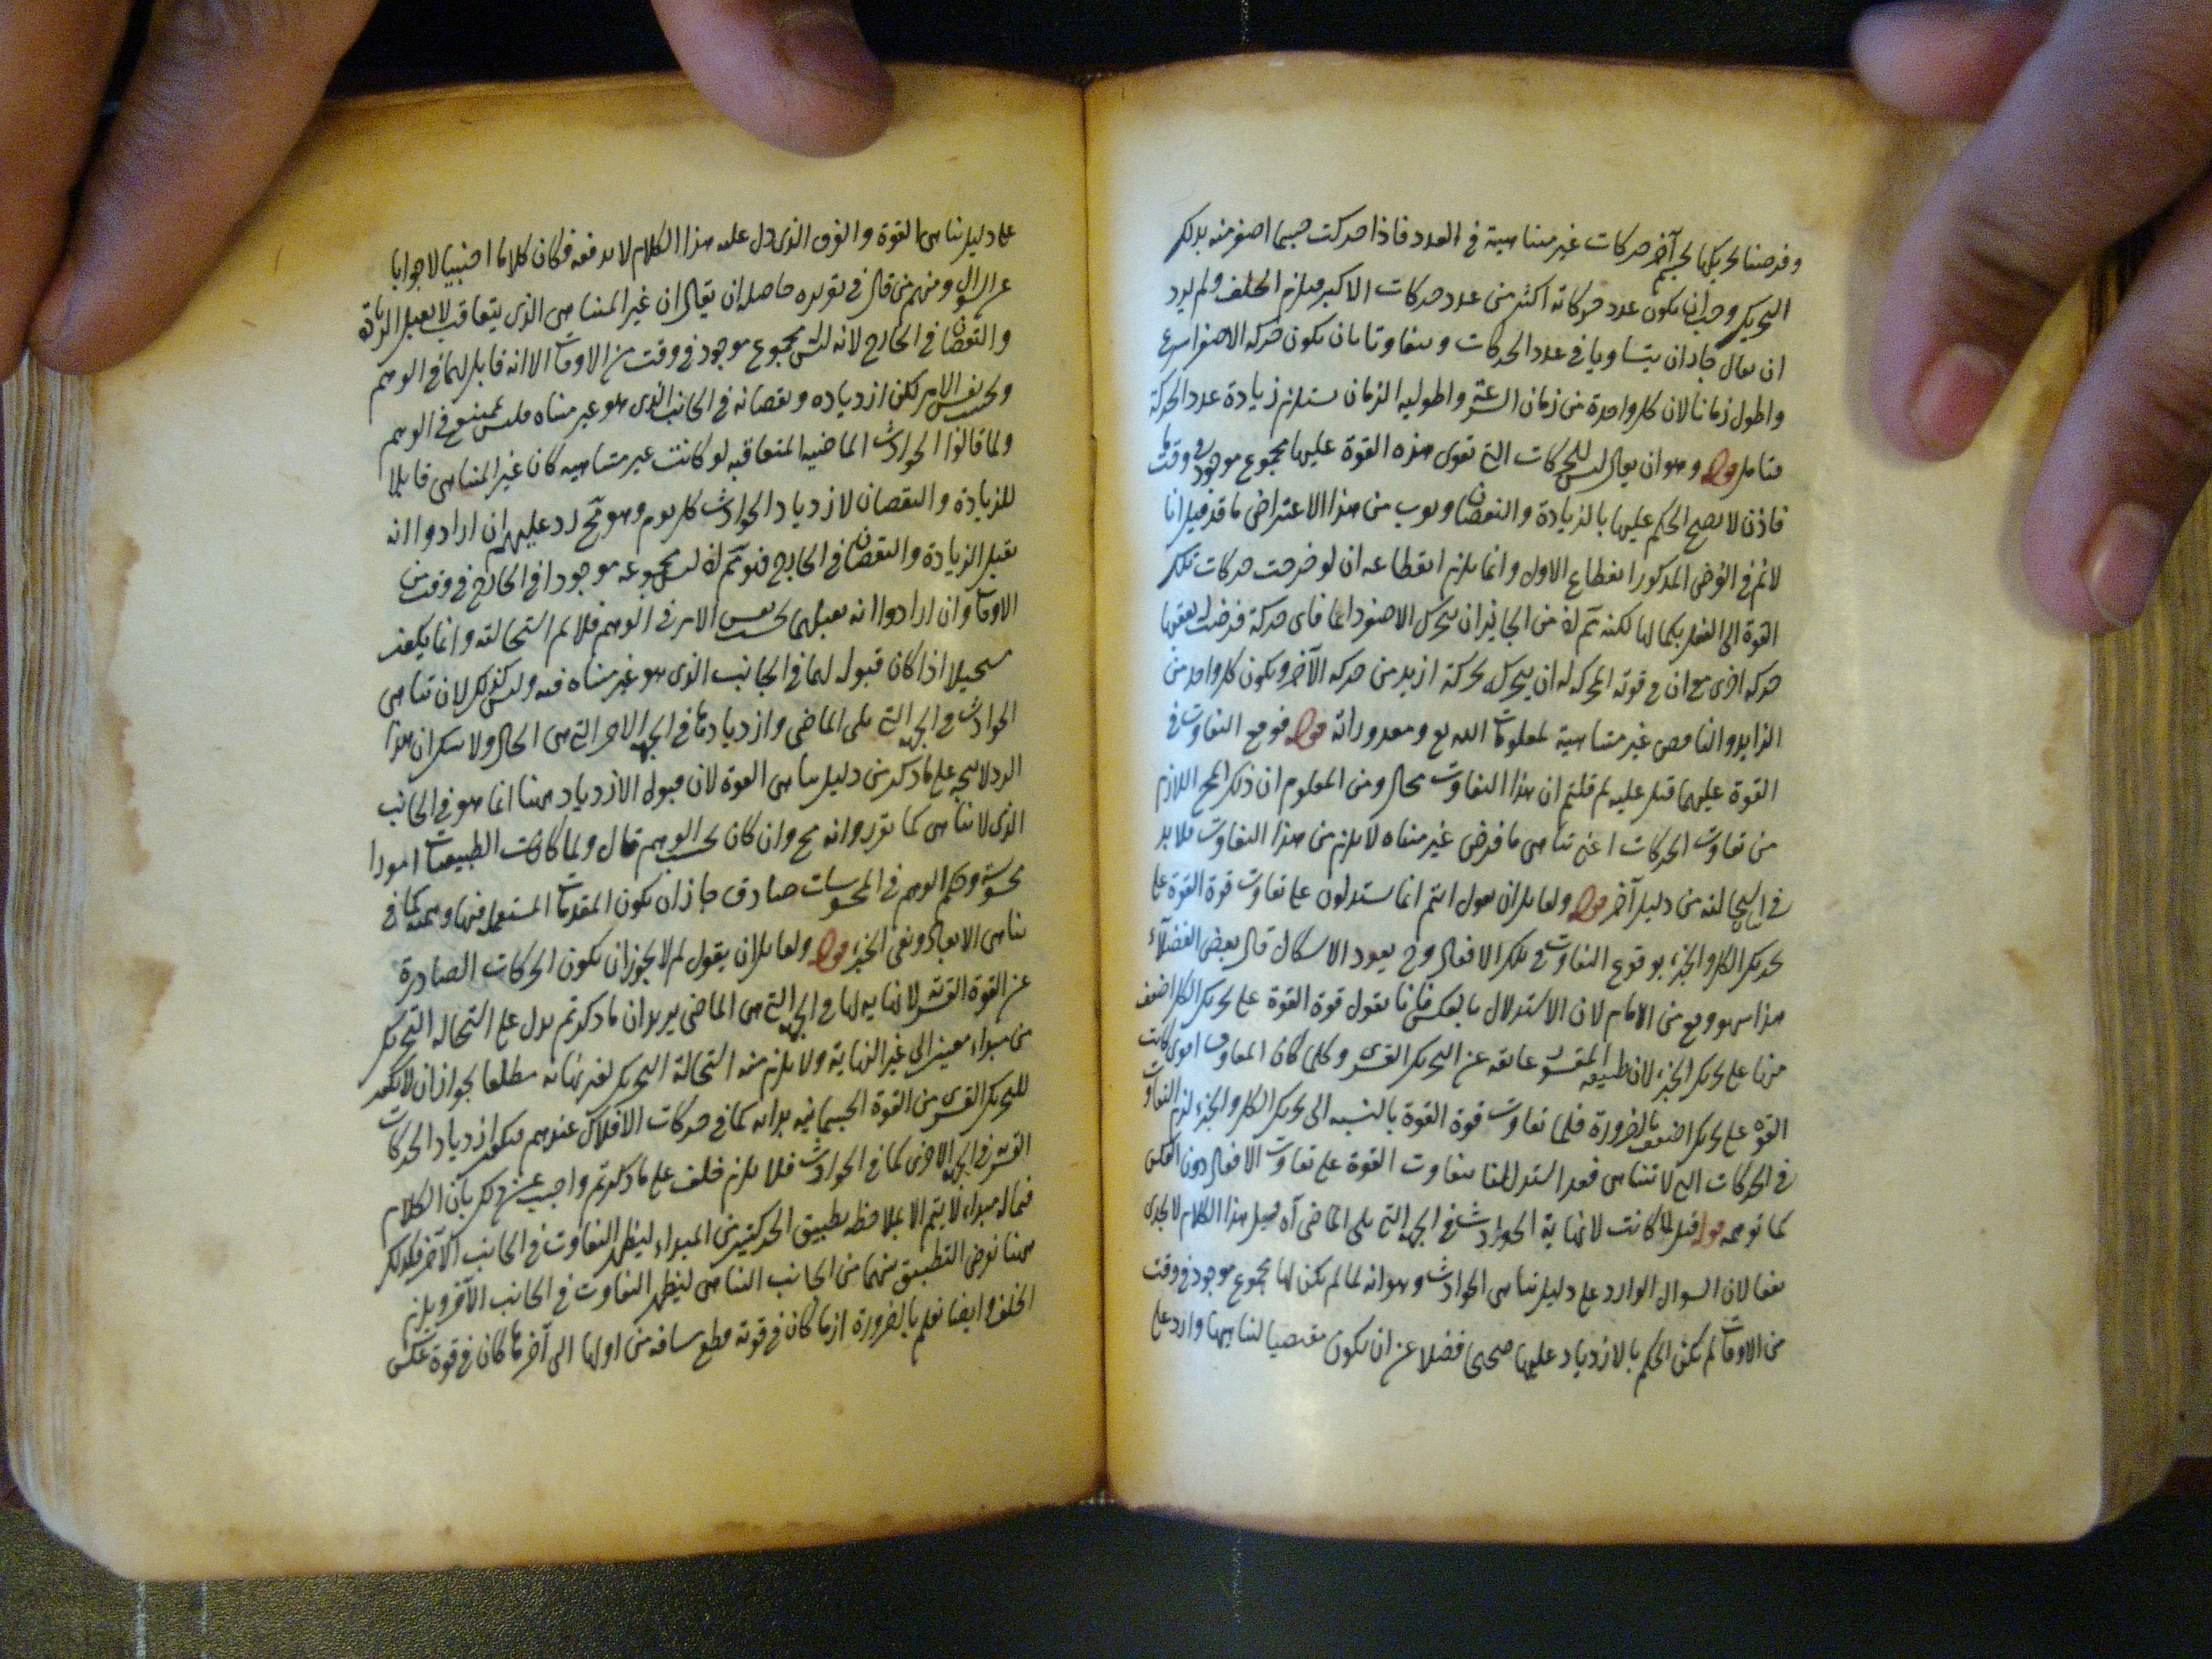 وفرضنا تحريكها لجسم آخر حركات غير متناهية في العدد فاذا حركت جسما اصغر منه بذلك
التحريك وجب ان يكون عدد حركاته اكثر من عدد حركات الاكبر فيلزم الخلف ولم يرد
ان يقال جاز ان يتساويا في عدد الحركات ويتفاوتا بان يكون حركة الاصغر اسرع
واطول زمانا لان كل واحدة من زمان السرعة واطولية الزمان يستلزم زيادة عدد الحركة
فتأمل قوله وهو ان يقال ليس للحركات التي تقوى هذه القوة عليها مجموع موجود في وقت ما
فاذن لا يصح الحكم عليها بالزيادة والنقصان من هذا الاعتراض ما قد قيل انا
لا نم في الفرض المذكور انقطاع الاول وانما يلزم انقطاعه ان لو خرجت حركات تلك
القوة الى الفعل بكمالها لكنه مم لان من الجايز ان يتحرك الاصغر دايما فاى حركة فرضت يعقبها
حركة اخرى مع ان في قوته المحركة له ان يتحرك بحركة ازيد من حركة الآخر ويكون كل واحد من
الزايد والناقص غير متناهية كمعلومات الله تع ومقدوراته قوله فوقع التفاوت في
القوة عليهما قيل عليه لم قلتم ان هذا التفاوت محال ومن المعلوم ان ذلك المح اللازم
من تفاوت الحركات اعني تناهى ما فرض غير متناه لا يلزم من هذا التفاوت فلا بد
في استحالته من دليل آخر قوله ولقايل ان يقول انتم انما تستدلون على تفاوت قوة القوة على
تحريك الكل والجزء بوقوع التفاوت في تلك الافعال وح يعود الاشكال قال بعض الفضلاء
هذا سهو وقع من الامام لان الاستدلال بالعكس فانا نقول قوة القوة على تحريك الكل اضعف
منها على تحريك الجزء لان طبيعة المقسور عايقة عن التحريك القسرى وكلما كان المعاوق اقوى كانت
القوة على تحريك اضعف بالضرورة فلما تفاوت قوة القوة بالنسبة الى تحريك الكل والجزء لزم التفاوت
في الحركات التي لا تتناهى فقد استدللنا بتفاوت القوة على تفاوت الافعال دون العكس
كما توهمه قوله قيل لما كانت لا نهاية الحوادث في الجهة التي يلي الماضى آه قيل هذا الكلام لا يجدى
نفعا لان السوال الوارد على دليل تناهى الحوادث وهو انه لما لم يكن لها مجموع موجود في وقت
من الاوقات لم يكن الحكم بالازدياد عليها صحيحا فضلا عن ان يكون مقتضيا لتناهيها وارد على
على دليل تناهى القوة والفرق الذى دل عليه هذا الكلام لا يدفعه فكان كلاما اجنبيا لا جوابا
عن السوال ومنهم من قال في تقريره حاصله ان يقال ان غير المتناهى الذى يتعاقب لا يقبل الزيادة
والنقصان في الخارج لانه ليس مجموع موجود في وقت من الاوقات الا انه قابل لهما في الوهم
وبحسب نفس الامر لكن ازدياده ونقصانه في الجانب الذى هو غير متناه فليس بممتنع في الوهم
ولما قالوا الحوادث الماضية المتعاقبة لو كانت غير متناهية كان غير المتناهى قابلا
للزيادة والنقصان لازدياد الحوادث كل يوم وهو مح رد عليهم ان ارادوا انه
يقبل الزيادة والنقصان في الخارج فهو مم لان ليس مجموعه موجودا في الخارج في وقت من
الاوقات وان ارادوا انه يقبلهما بحسب نفس الامر في الوهم فلا نم استحالته وانما يكون
مستحيلا اذا كان قبوله لهما في الجانب الذى هو غير متناه فيه وليس كذلك لان تناهى
الحوادث في الجهة التي يلي الماضى وازديادها في الجهة الاخر التي هي الحال ولا شك ان هذا
الرد لا يتجه على ما ذكر من دليل تناهى القوة لان قبول الازدياد ههنا انما هو في الجانب
الذى لا تناهى كما تقرر وانه مح وان كان بحسب الوهم قال ولما كانت الطبيعيات امورا
محسوسة وحكم الوهم في المحسوسات صادق جاز ان يكون المقدمات المستعملة فيها وهمية كما في
تناهى الابعاد ونفى الجزء قوله ولقايل ان يقول لم لا يجوز ان يكون الحركات الصادرة
عن القوة القسرية لا نهاية لها في الجهة التي هي الماضى يريد ان ما ذكرتم يدل على استحالة التحريك
من مبداء معين الى غير النهاية ولا يلزم منه استحالة التحريك لغير نهاية مطلقا بجواز ان لا يكون
للتحريك القسرى من القوة الجسمانية بداية كما في حركات الافلاك عندهم فيكون ازدياد الحركات
القسرية في الجهة الاخرى كما في الحوادث فلا يلزم خلف على ما ذكرتم واجيب عن ذلك بان الكلام
فيما له مبداء لا يتم الا بملاحظة تطبيق الحركتين من المبداء ليظهر التفاوت في الجانب الآخر فكذلك
ههنا نفرض التطبيق بينهما من الجانب المتناهى ليظهر التفاوت في الجانب الآخر ويلزم
الخلف وايضا نعلم بالضرورة ان ما كان في قوته قطع مسافة من اولها الى آخرها كان في قوته عكس